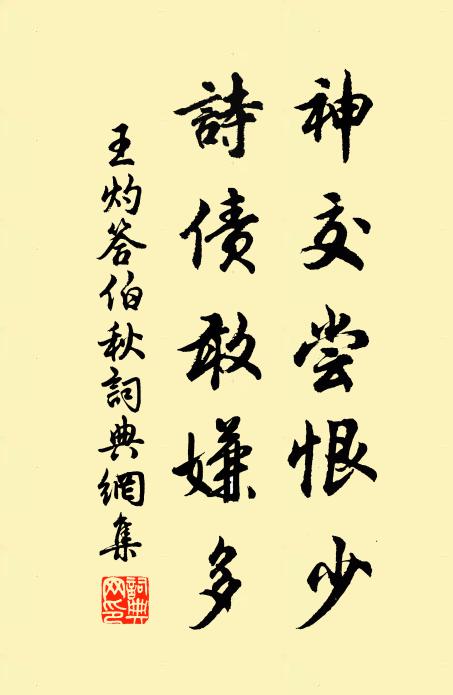 神交尝恨少
詩债敢嫌多
王灼答伯秋詞典網集
詞典
网印